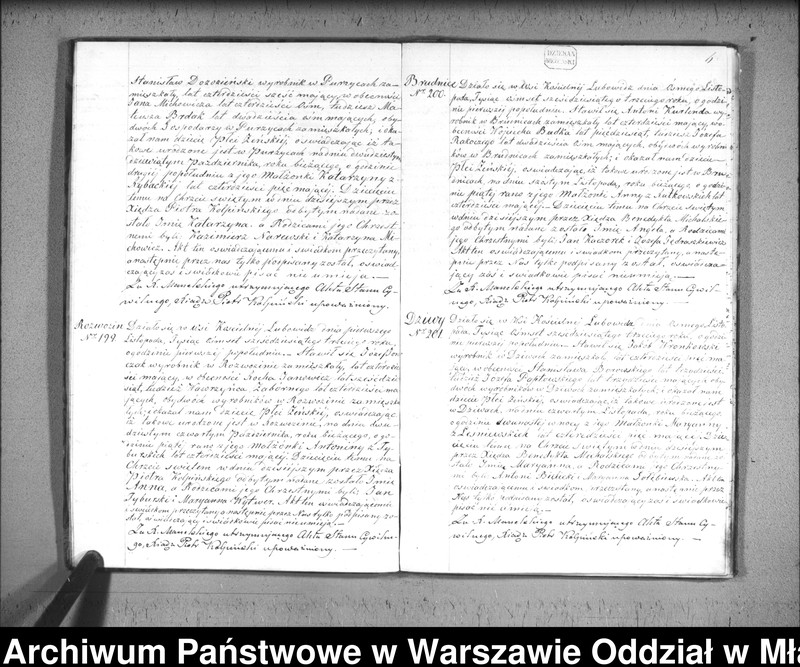 Stanisław wyrobnik w Purzycach za-
mieszkały, lat czterdzieści sześć mający, w obecności
Jana Michowicza lat czterdzieści ośm, tudzież Ma-
teusza Brdak lat dwadzieścia ośm mających, oby-
dwóch Gospodarzy w Purzycach zamieszkałych, i oka-
zał nam dziecię płci żeńskiej, oświadczając iż ta-
kowe urodzone jest w Purzycach na dniu dwudziestym
Października, roku bieżącego, o godzinie
drugiej popołudniu z jego Małżonki Katarzyny z
Rybackiej lat czterdzieści pięć mającej. Dziecięciu
temu na Chrzcie świętym w dniu dzisiejszym przez
Xiędza Piotra Kolpińskiego odbytym nadane zo-
stało Imie Katarzyna, a Rodzicami jego Chrzest-
nemi byli Kazimierz Narewski i Katarzyna Mi-
chowicz. Akt ten oświadczającemu i świadkom przeczytany,
a następnie przez nas tylko podpisany został, oświad-
czający zaś i świadkowie pisać nie umieją.
Za A. Manelskiego utrzymującego Akta Stanu Cy-
wilnego, Xiądz Piotr Kolpiński upoważniony.
Rozwozin
Nr 199.
Działo się w Wsi Kościelnej Lubowidz dnia pierwszego
Listopada, Tysiąc ośmset sześćdziesiątego trzeciego roku,
o godzinie pierwszej popołudniu. Stawił się Józef
wyrobnik w Rozwozinie zamieszkały, lat czterdzie-
ści mający, w obecności Rocha Janowicz lat sześćdzie-
siąt, tudzież Wawrzyńca lat czterdzieści ma-
jących, obydwóch wyrobników w Rozwozinie zamieszka-
łych, i okazał nam dziecię płci żeńskiej, oświadczając
iż takowe urodzone jest w Rozwozinie, na dniu dwu-
dziestym czwartym Października, roku bieżącego, o go-
dzinie piątej rano z jego Małżonki Antoniny z Ty-
burskich lat czterdzieści mającej. Dziecięciu temu na
Chrzcie świętem w dniu dzisiejszym przez Xiędza
Piotra Kolpińskiego odbytym nadane zostało Imie
Anna, a Rodzicami jego Chrzestnemi byli Jan
Tyburski i Maryanna Wagner. Akt ten oświadczającemu
i świadkom przeczytany, a następnie przez Nas tylko podpisany zo-
stał, oświadczający i świadkowie pisać nie umieją.
Za A. Manelskiego utrzymującego Akta Stanu Cywilne-
go, Xiądz Piotr Kolpiński upoważniony.
Brudnice
Nr 200.
Działo się w Wsi Kościelnej Lubowidz dnia ósmego Listo-
pada, Tysiąc ośmset sześćdziesiątego trzeciego roku, o godzi-
nie pierwszej popołudniu. Stawił się Antoni Kurlenda wy-
robnik w Brudnicach zamieszkały lat czterdzieści mający, w o-
becności Wojciecha Budka lat pięćdziesiąt, tudzież Józefa
Rakoczego lat dwadzieścia ośm mających, obydwóch wyrobni-
ków w Brudnicach zamieszkałych; i okazał nam dziecię
płci żeńskiej, oświadczając, iż takowe urodzone jest w Brud-
nicach, na dniu szóstym Listopada, roku bieżącego, o godzi-
nie piątej rano z jego Małżonki Anny z Nutkowskich lat
czterdzieści mającej. Dziecięciu temu na Chrzcie świętym
w dniu dzisiejszym przez Xiędza Benedykta Michalskie-
go odbytym nadane zostało Imie Aniela, a Rodzicami
jego Chrzestnymi byli Jan Kaczorek i Zofija Jędraszkiewicz
Akt ten oświadczającemu i świadkom przeczytany, a nastę-
pnie przez Nas tylko podpisany został, oświadcza-
jący zaś i świadkowie pisać nie umieją.
Za A. Manelskiego utrzymującego Akta Stanu Cywil-
nego, Xiądz Piotr Kolpiński upoważniony.
Dziwy
Nr 201.
Działo się w Wsi Kościelnej Lubowidz dnia ósmego Listo-
pada, Tysiąc ośmset sześćdziesiątego trzeciego roku, o godzi-
nie pierwszej popołudniu. Stawił się Jakób Wronkowski
wyrobnik w Dziwach zamieszkały, lat czterdzieści ma-
jący, w obecności Stanisława Borowskiego lat trzydzieści
tudzież Józefa lat trzydzieści mających oby-
dwóch wyrobników w Dziwach zamieszkałych, i okazał nam
dziecię płci żeńskiej, oświadczając, iż takowe urodzone jest
w Dziwach, na dniu czwartym Listopada, roku bieżącego,
o godzinie dwunastej w nocy z jego Małżonki Maryanny
z Leśniewskich lat czterdzieści mającej. Dzie-
cięciu temu na Chrzcie świętym w dniu dzisiejszym
przez Xiędza Benedykta Michalskiego odbytym nadane zo-
stało Imie Maryanna, a Rodzicami jego Chrzestny-
mi byli Antoni i Maryanna. Akt ten
oświadczającemu i świadkom przeczytany, a następnie przez
Nas tylko podpisany został, oświadczający zaś i świadkowie
pisać nie umieją.
Za A. Manelskiego utrzymującego Akta Stanu Cy-
wilnego, Xiądz Piotr Kolpiński upoważniony.
Archiwum Państwowe w Warszawie Oddział w Mła